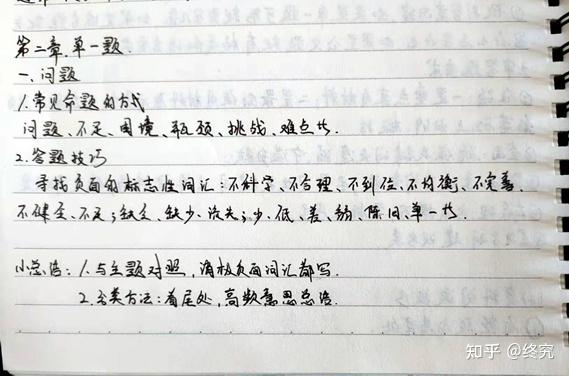 第二章.单一题.
一、问题
1.常见命题的方式
问题、不足、困境、瓶颈、挑战、难点等.
2.答题技巧
寻找负面的标志性词汇:不科学、不合理、不到位、不均衡、不完善、
不健全、不足;缺乏、缺少、流失;少、低、差、弱、陈旧、单一等.
小总结:1.与主题对照,消极负面词汇都写.
2.分类方法:首尾处,高频意思总结.
知乎 @终究